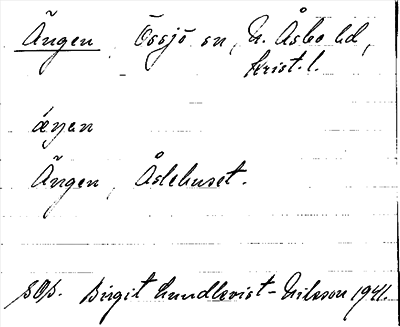 Ängen, Össjö sn, N. Åsbo hd,
Krist. l.
áŋen
Ängen, Åslehuset.
sOp. Birgit Lundkvist-Nilsson 1941.